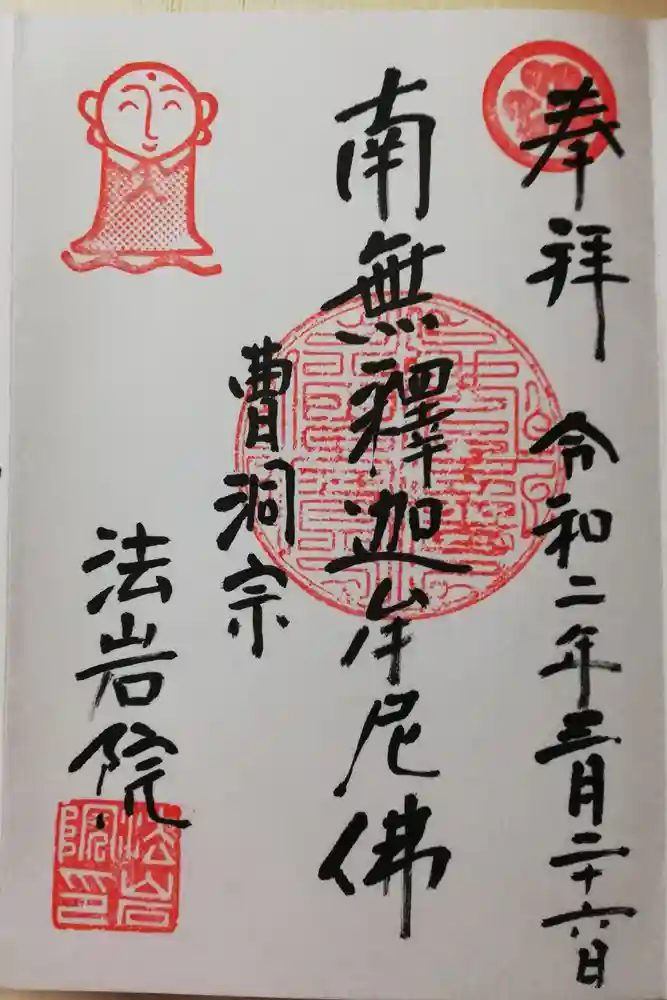 奉拝
令和二年三月二十六日
南無釋迦牟尼佛
曹洞宗
法岩院
法岩院印